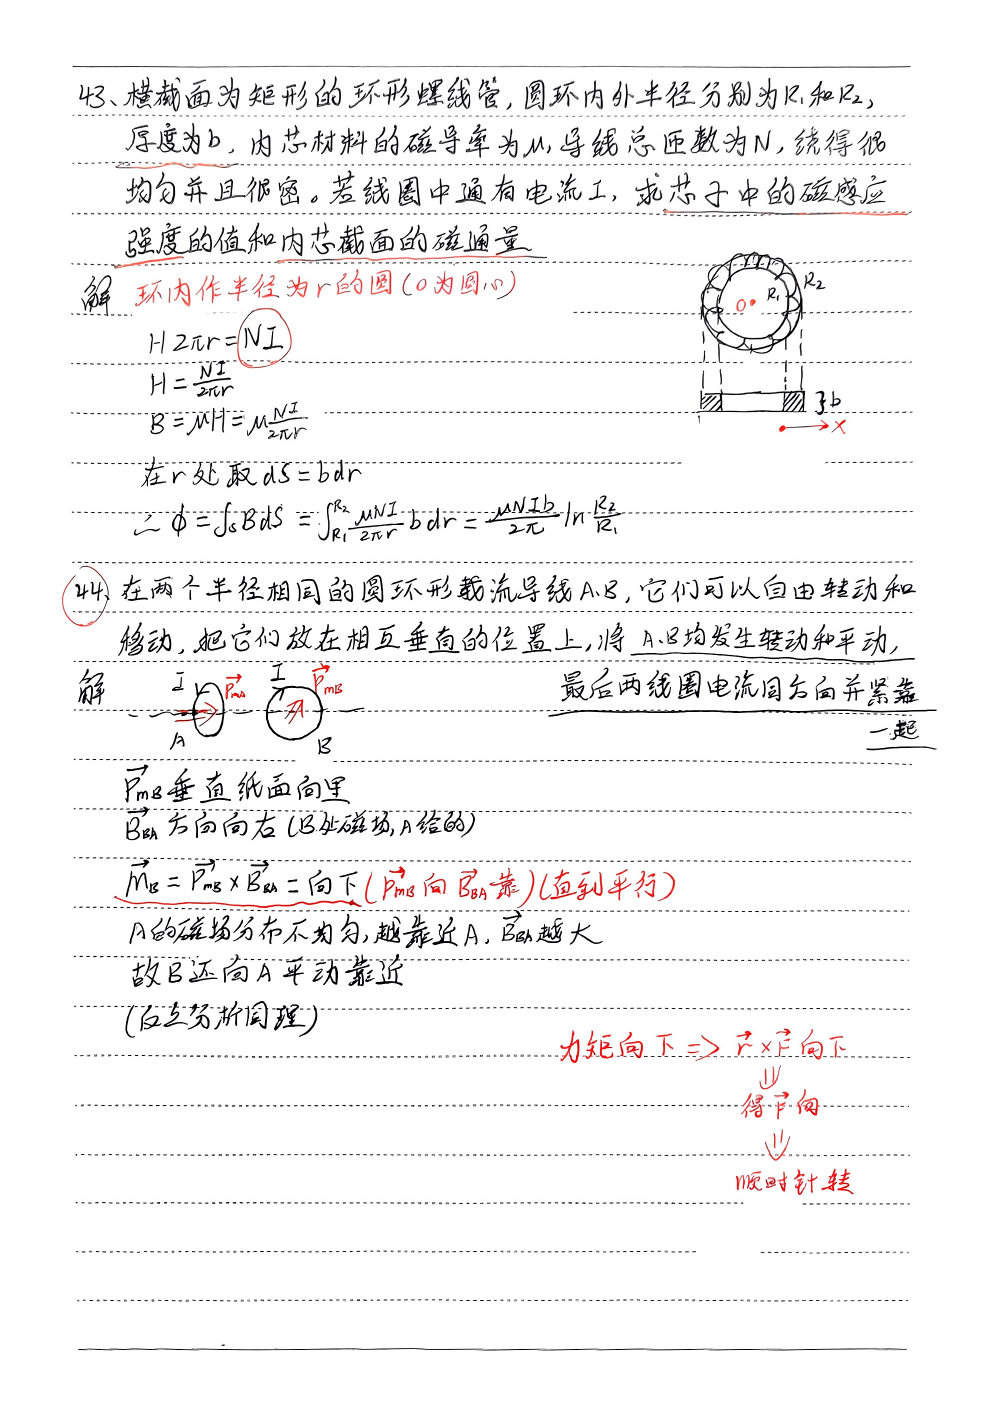 43、横截面为矩形的环形螺线管,圆环内外半径分别为R₁和R₂,
厚度为b,内芯材料的磁导率为μ,导线总匝数为N,绕得很
均匀并且很密。若线圈中通有电流I,求芯子中的磁感应
强度的值和内芯截面的磁通量
解 环内作半径为r的圆(O为圆心)
O R₁ R₂
H2πr=NI
H=NI/2πr
B=μH=μNI/2πr
b
x
在r处取dS=bdr
∴ φ=∫ₛBdS=∫_{R₁}^{R₂} μNI/2πr bdr=μNIb/2π ln R₂/R₁
44、在两个半径相同的圆环形载流导线A.B,它们可以自由转动和
移动,把它们放在相互垂直的位置上,将 A.B均发生转动和平动,
最后两线圈电流同方向并紧靠
一起
解 I P⃗mA I P⃗mB
A B
P⃗mB垂直纸面向里
B⃗BA方向向右(B处磁场,A给的)
M⃗B=P⃗mB×B⃗BA=向下(P⃗mB向B⃗BA靠)(直到平行)
A的磁场分布不均匀,越靠近A,B⃗BA越大
故B还向A平动靠近
(反之分析同理)
力矩向下=>r⃗×F⃗向下
⇓
得F⃗向
⇓
顺时针转